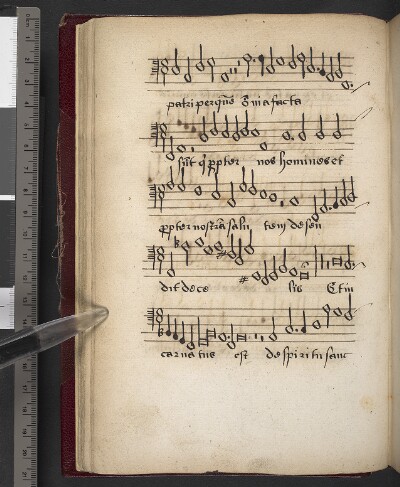 patri per quē ōnia facta
sūt q̄ ꝓpter nos homines et
ꝓpter nostrā salu tem desen
dit de ce lis Et in
carnatus est de spiritu sanc